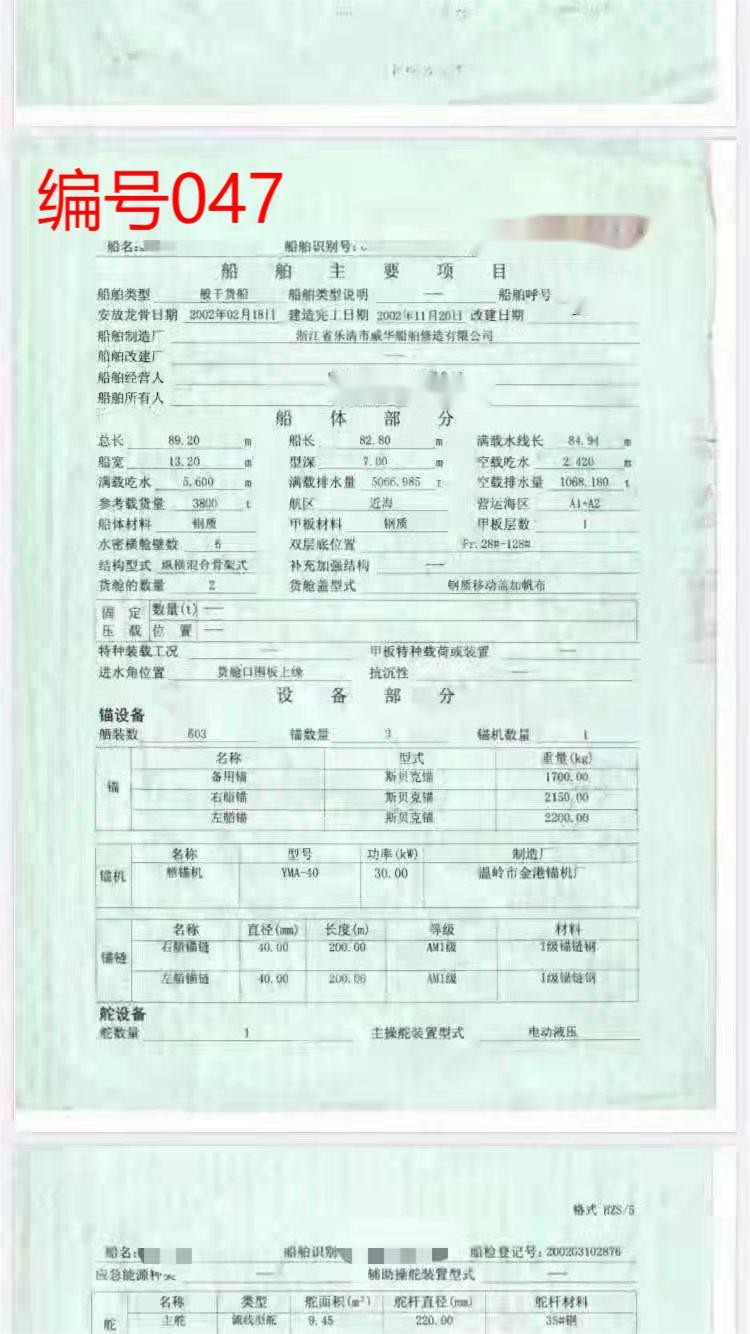 编号047
船名:
船舶识别号:
船 舶 主 要 项 目
船舶类型 般干货船 船舶类型说明 — 船舶呼号
安放龙骨日期 2002年02月18日 建造完工日期 2002年11月20日 改建日期 —
船舶制造厂 浙江省乐清市威华船舶修造有限公司
船舶改建厂 —
船舶经营人
船舶所有人
船 体 部 分
总长 89.20 m 船长 82.80 m 满载水线长 84.94 m
船宽 13.20 m 型深 7.00 m 空载吃水 2.420 m
满载吃水 5.600 m 满载排水量 5066.985 T 空载排水量 1068.180 t
参考载货量 3800 t 航区 近海 营运海区 A1+A2
船体材料 钢质 甲板材料 钢质 甲板层数 1
水密横舱壁数 6 双层底位置 Fr.28#-128#
结构型式 纵横混合骨架式 补充加强结构 —
货舱的数量 2 货舱盖型式 钢质移动盖加帆布
固 定 数量(t) —
压 载 位 置 —
特种装载工况 — 甲板特种载荷或装置 —
进水角位置 货舱口围板上缘 抗沉性 —
设 备 部 分
锚设备
舾装数 603 锚数量 3 锚机数量 1
名称 型式 重量(kg)
锚 备用锚 斯贝克锚 1700.00
右艏锚 斯贝克锚 2150.00
左艏锚 斯贝克锚 2200.00
名称 型号 功率(kW) 制造厂
锚机 艏锚机 YMA-40 30.00 温岭市金港锚机厂
名称 直径(mm) 长度(m) 等级 材料
锚链 右艏锚链 40.00 200.00 AM1级 1级锚链钢
左艏锚链 40.00 200.00 AM1级 1级锚链钢
舵设备
舵数量 1 主操舵装置型式 电动液压
格式 HZS/5
船名: 船舶识别 船检登记号: 2002G3102876
应急能源种类 — 辅助操舵装置型式 —
名称 类型 舵面积(m²) 舵杆直径(mm) 舵杆材料
舵 主舵 流线型舵 9.45 220.00 35#钢